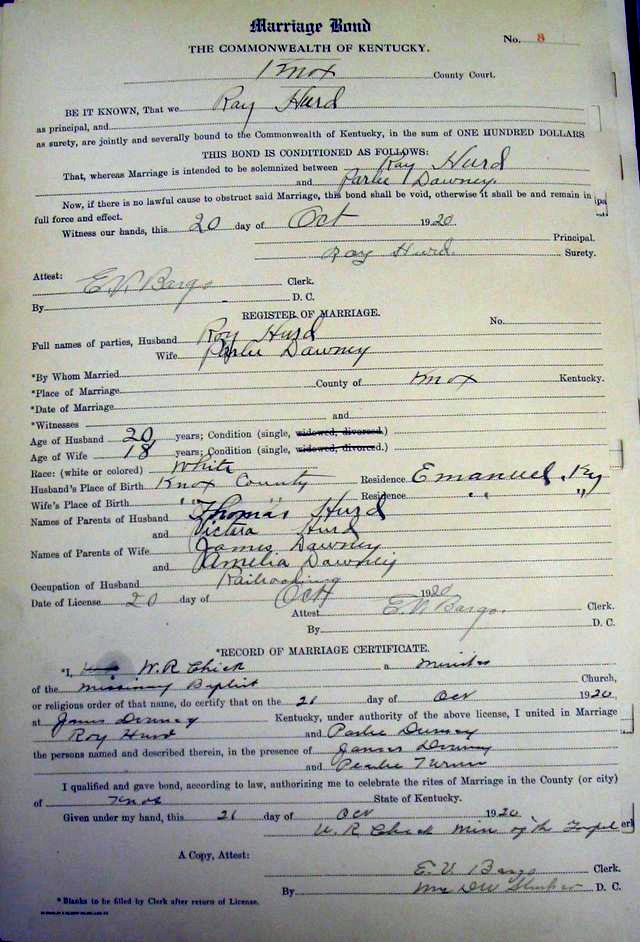 Marriage Bond
No. 8
THE COMMONWEALTH OF KENTUCKY.
Knox County Court.
BE IT KNOWN, That we Ray Hurd
as principal, and
as surety, are jointly and severally bound to the Commonwealth of Kentucky, in the sum of ONE HUNDRED DOLLARS
THIS BOND IS CONDITIONED AS FOLLOWS:
That, whereas Marriage is intended to be solemnized between Ray Hurd
and Parlie Dawney.
Now, if there is no lawful cause to obstruct said Marriage, this bond shall be void, otherwise it shall be and remain in
full force and effect.
Witness our hands, this 20 day of Oct 1920
Principal.
Ray Hurd. Surety.
Attest:
E. V. Bargo Clerk.
By D. C.
REGISTER OF MARRIAGE.
Full names of parties, Husband Roy Hurd No.
Wife Parlie Dawney
*By Whom Married
*Place of Marriage County of Knox Kentucky.
*Date of Marriage
*Witnesses and
Age of Husband 20 years; Condition (single, widowed, divorced.)
Age of Wife 18 years; Condition (single, widowed, divorced.)
Race: (white or colored) White
Husband's Place of Birth Knox County Residence Emanuel, Ky
Wife's Place of Birth " " Residence " "
Names of Parents of Husband Thomas Hurd
and Victera Hurd
Names of Parents of Wife James Dawney
and Amelia Dawney
Occupation of Husband Railroading
Date of License 20 day of Oct 1920
Attest E. V. Bargo. Clerk.
By D. C.
*RECORD OF MARRIAGE CERTIFICATE.
*I, W. R Chick a minister
of the Missionary Baptist Church,
or religious order of that name, do certify that on the 21 day of Oct 1920
at James Downey Kentucky, under authority of the above license, I united in Marriage
Roy Hurd and Parlie Dumey
the persons named and described therein, in the presence of James Downey
and Pearlie Turner
I qualified and gave bond, according to law, authorizing me to celebrate the rites of Marriage in the County (or city)
of Knox State of Kentucky.
Given under my hand, this 21 day of Oct 1920
W. R Chick Min of the Gospel
A Copy, Attest:
E. V. Bargo Clerk.
By Mrs D. C.
*Blanks to be filled by Clerk after return of License.